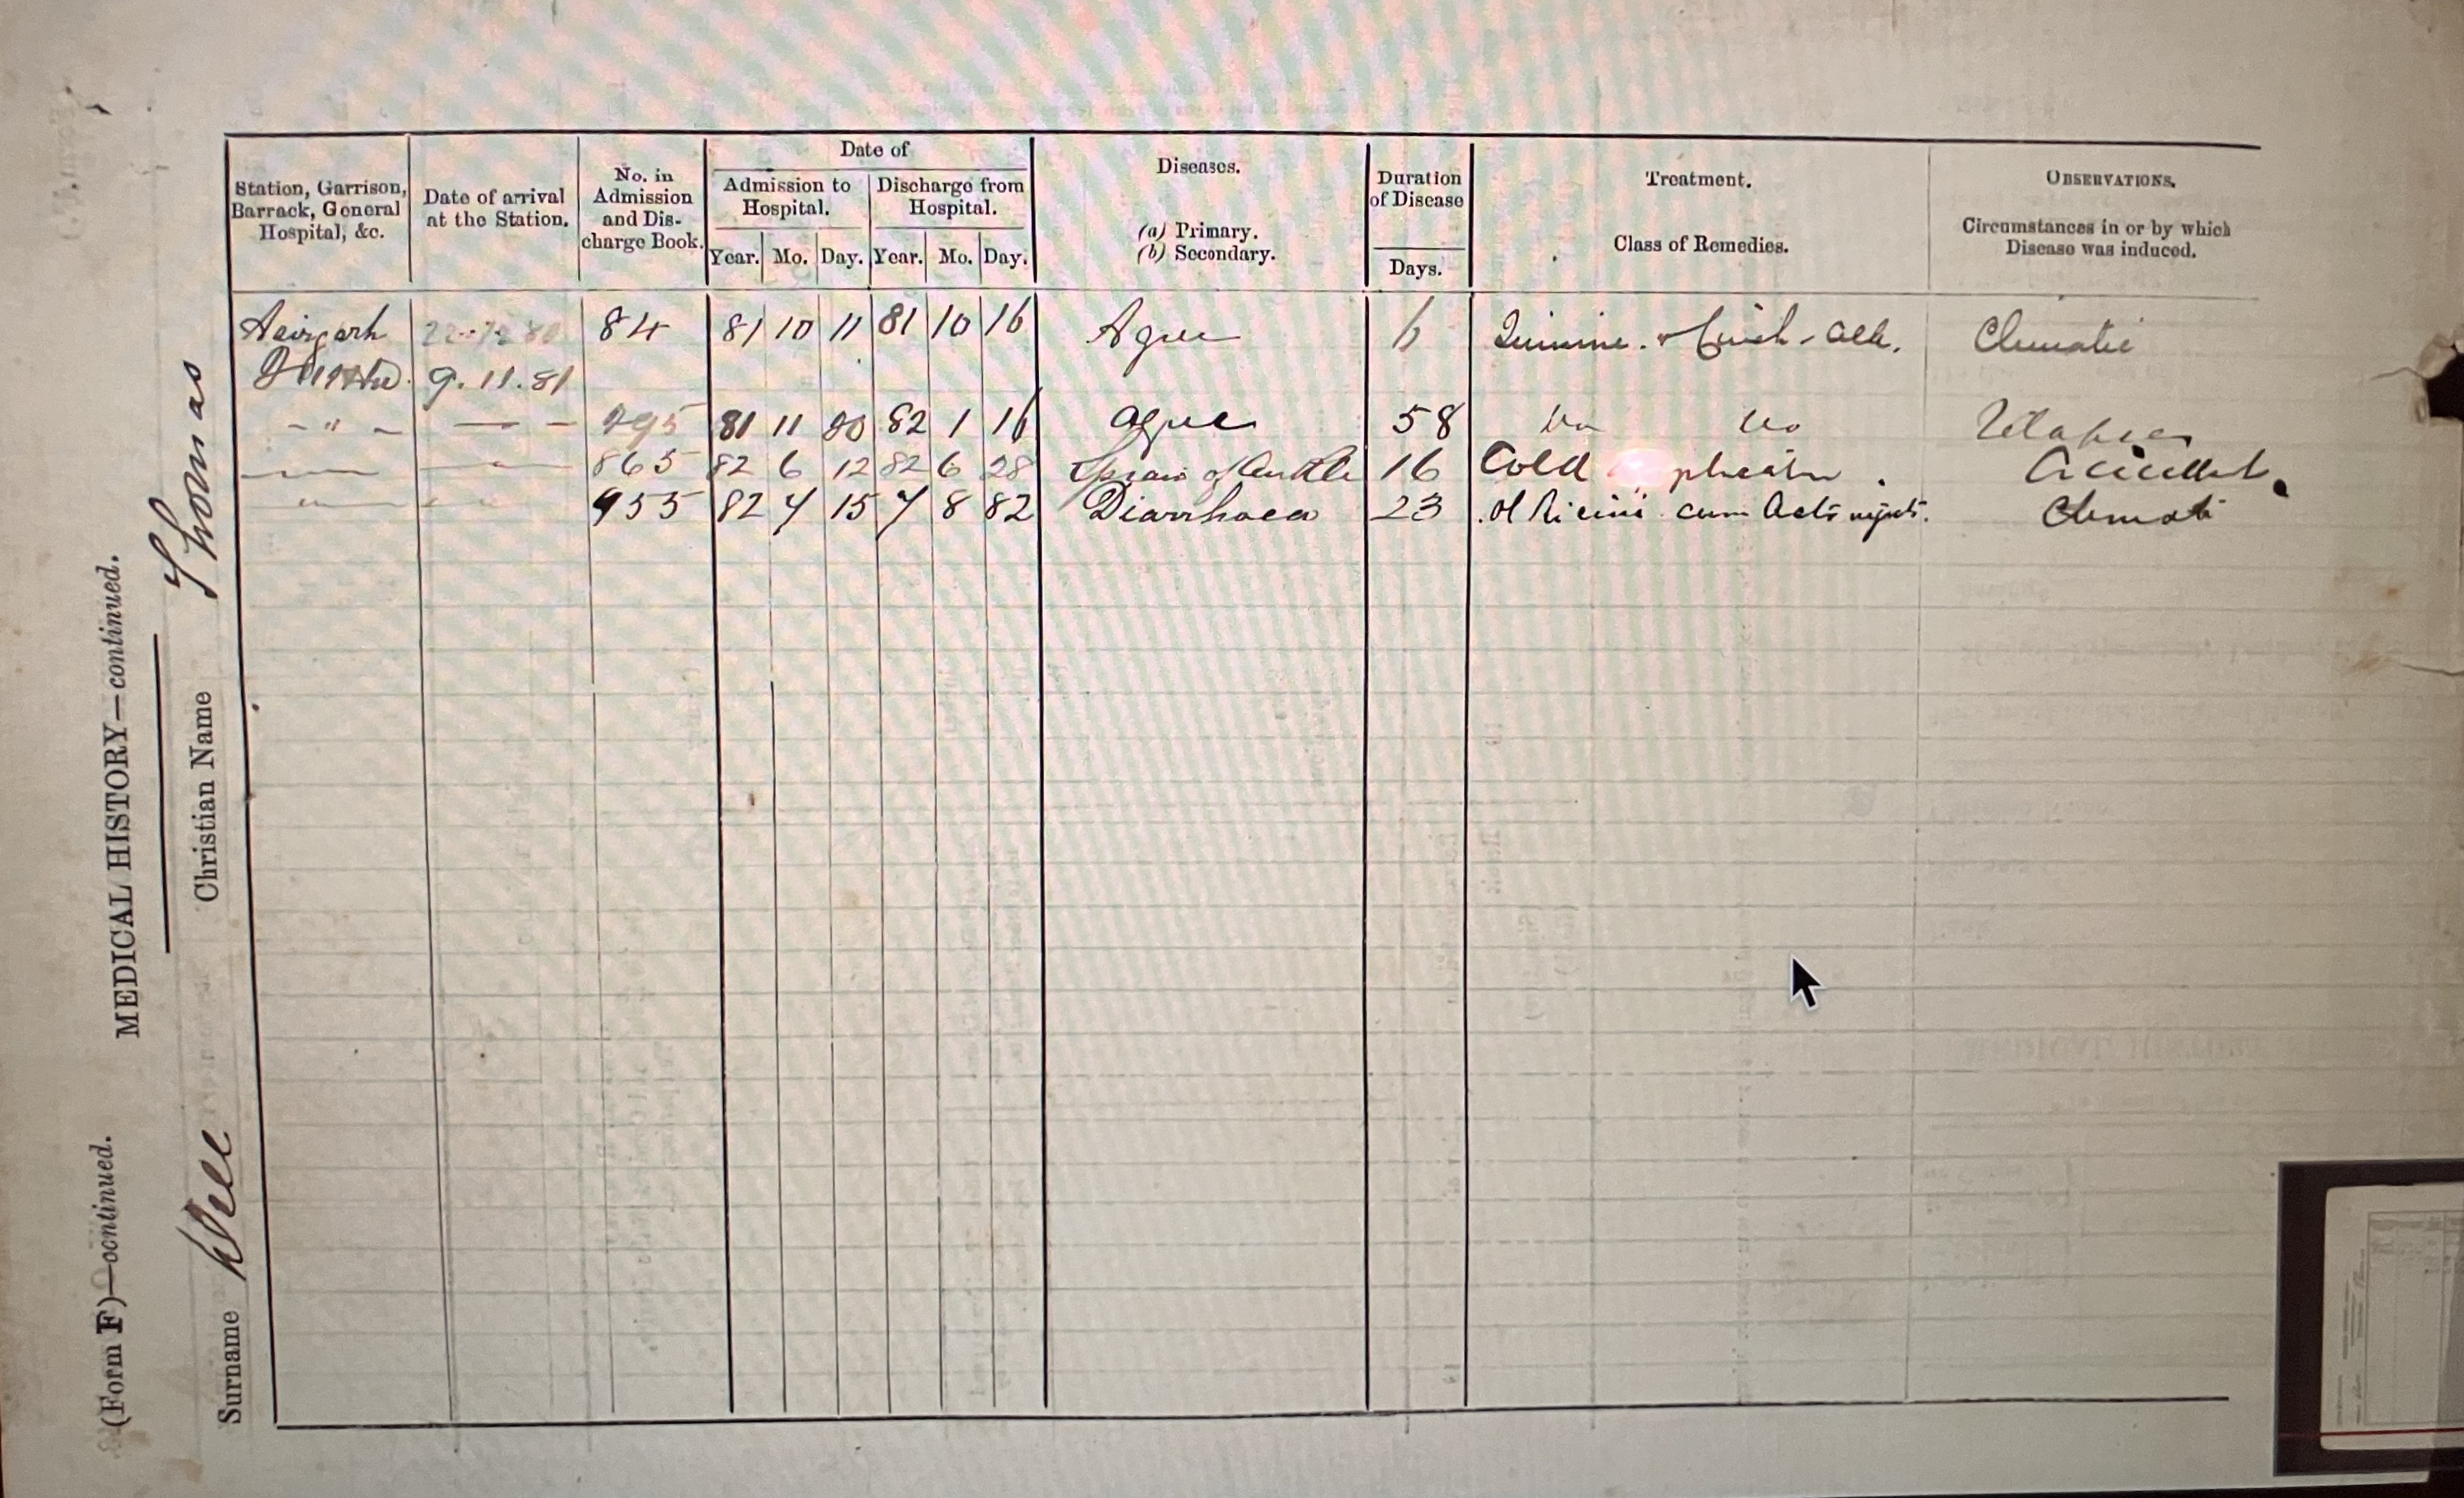 (Form F)—ocntinued.
MEDICAL HISTORY—continued.
Surname
Christian Name Thomas
Station, Garrison, Barrack, General Hospital, &c.
Date of arrival at the Station.
No. in Admission and Dis- charge Book.
Date of
Admission to Hospital.
Discharge from Hospital.
Year. Mo. Day. Year. Mo. Day.
Diseases.
(a) Primary.
(b) Secondary.
Duration of Disease
Days.
Treatment.
Class of Remedies.
OBSERVATIONS.
Circumstances in or by which Disease was induced.
84 81 10 11 81 10 16 Ague 6 Quinine. Climatic
9.11.81
— " — 81 11 20 82 1 16 Ague 58 Relapse
865 82 6 12 82 6 28 Sprain of Ankle 16 Cold Accident
955 82 7 15 7 8 82 Diarrhoea 23 Ol Ricini cum